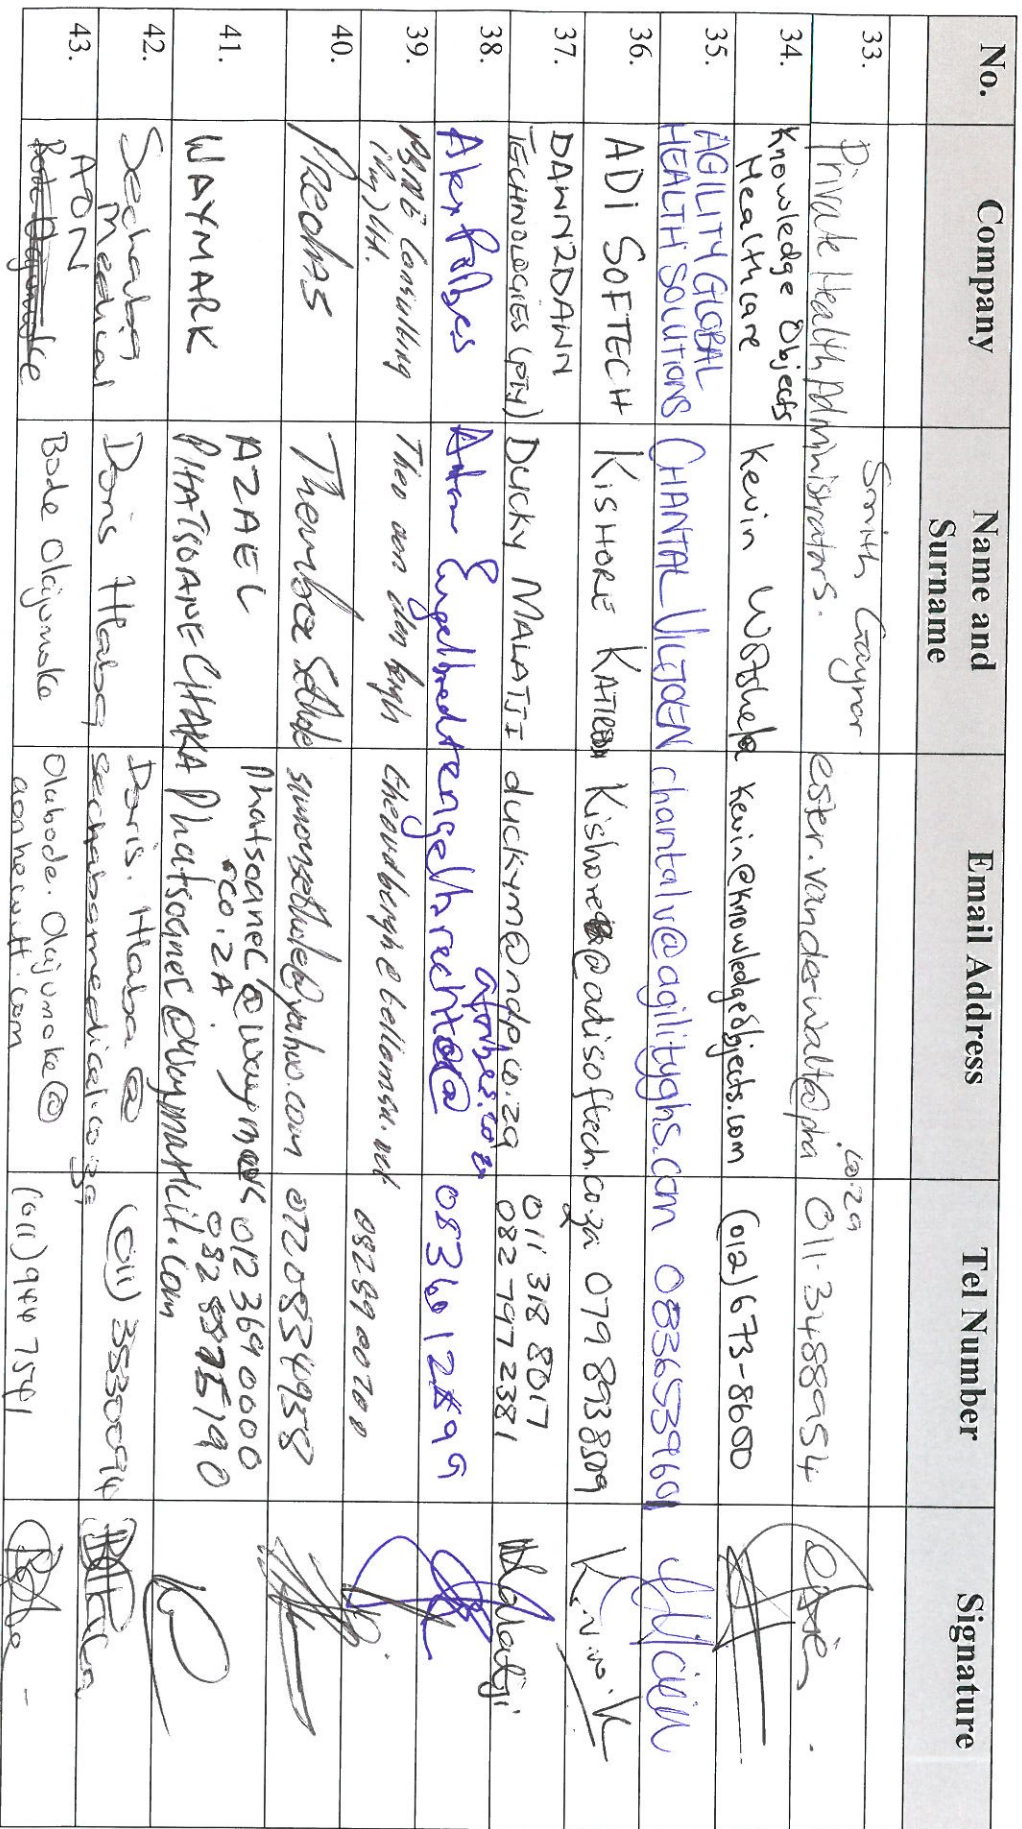 No. Company Name and Surname Email Address Tel Number Signature
33. Private Health Administrators. Smith Gaynor ester.vanderwalt@pha.co.za 011-3488954
34. Knowledge Objects Healthcare Kevin kevin@knowledgeobjects.com (012)673-8600
35. AGILITY GLOBAL HEALTH SOLUTIONS CHANTAL VILJOEN chantalv@agilityghs.com 0836539601
36. ADI SOFTECH KISHORE Kishore@adisoftech.co.za 079 8938509
37. DAWN2DAWN TECHNOLOGIES (PTY) DUCKY MALATJI duckym@ndp.co.za 011 318 8017
082 797 2381 Malatji
38. Alex forbes
39. Consulting Theo van den bergh
40. Themba Sethole simonsethole@yahoo.com 0720834958
41. WAYMARK AZAEL PHATSOANE CHAKA PhatsoaneC@waymark.co.za 012 369 0000
PhatsoaneC@waymarkit.com
42. Sechaba Medical Doris Hlaba Doris.Hlaba@sechabamedical.co.za (011) 3530094
43. AON Bode Olajumoke Olabode.Olajumoke@aonhewitt.com (011) 944 7541